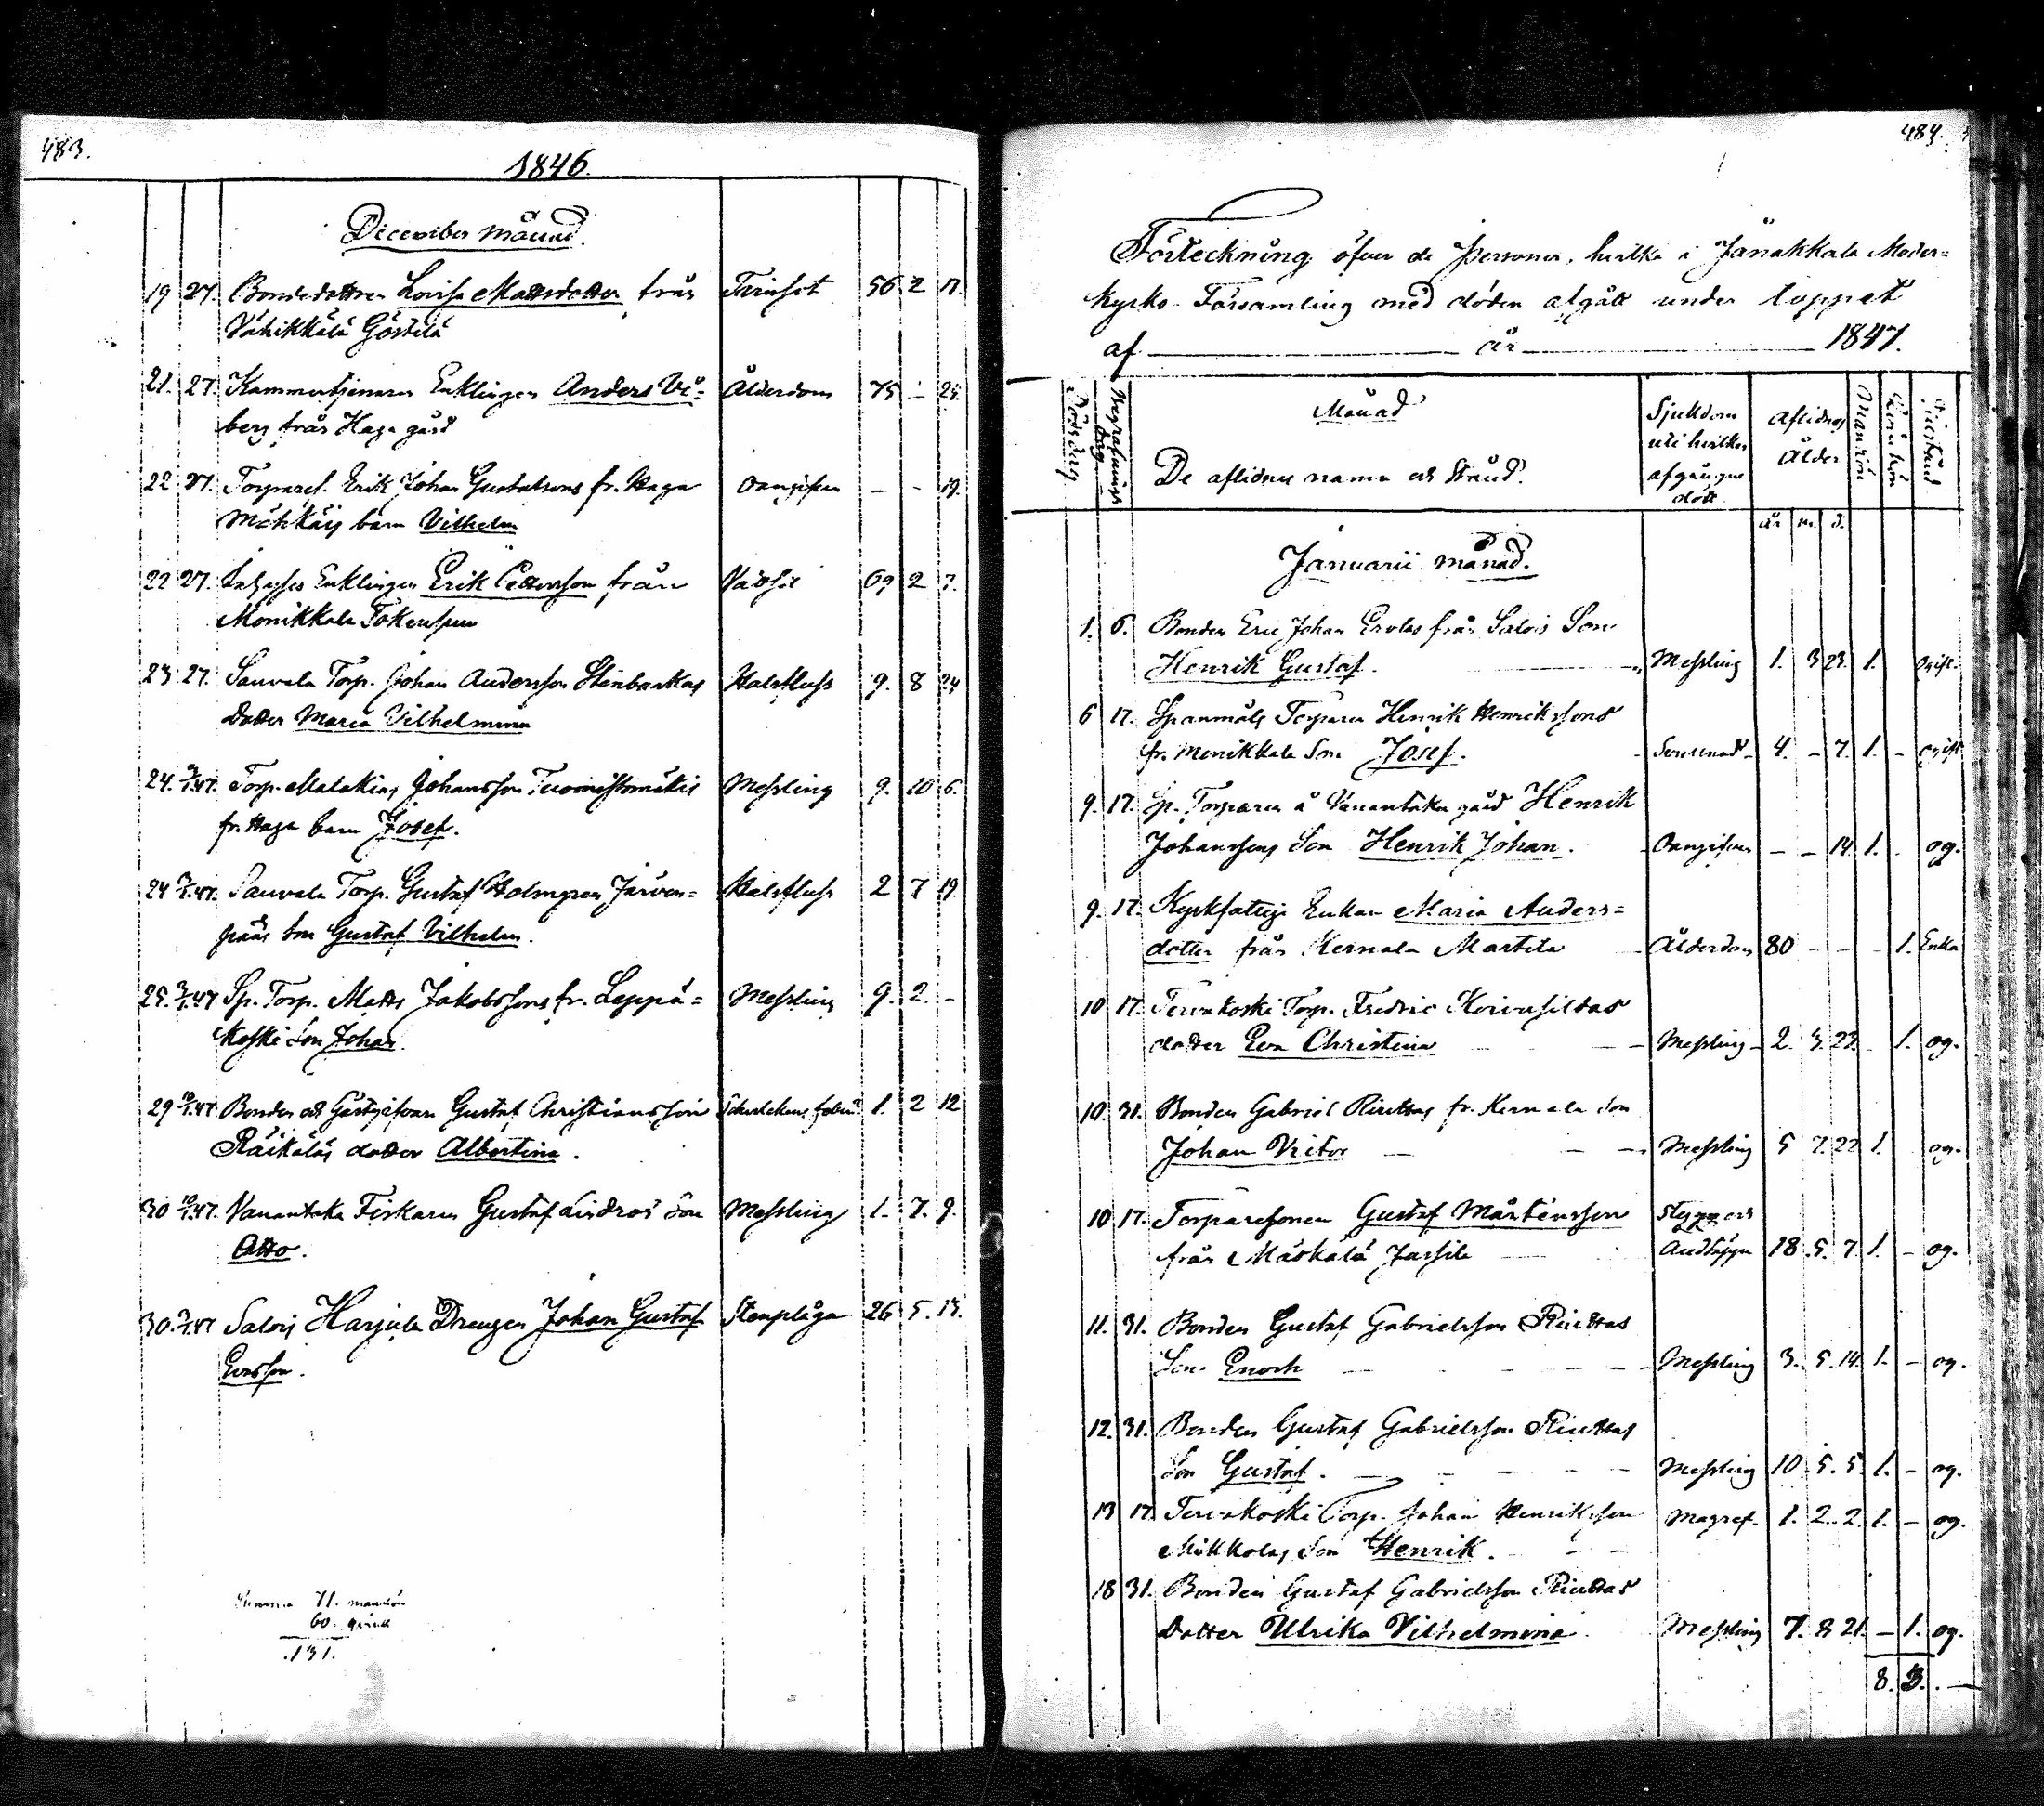 483.
1846.
December månad.
19 27. Bondedottren Lovisa Mattsdotter från Tärinsot 56 2 17.
Vähikkälä Göstilä
21. 27. Kammartjenaren Enklingen Anders Vi= Ålderdom 75 — 24.
berg från Haga gård
22 27. Torparesonen Erik Johan Gustafsons fr. Haga Oangifven — - 19.
barn Vilhelm
22 27. Enklingen Erik Pettersson från 69 2 7.
Monikkala
23 27. Sauvala Torp. Johan Andersson Stenbackas Halsfluss 9. 8 24
dotter Maria Vilhelmina
24. 3/1.47. Torp. Malakias Johansson Tuomistomäkis Messling 9. 10 6.
fr. Haga barn Josef.
24 3/1.47. Sauvala Torp. Gustaf Holmgren Järven= Halsfluss 2 7 19.
pääs Son Gustaf Vilhelm.
25. 3/1.47 Sp. Torp. Matts Jakobssons fr. Leppä= Messling 9. 2. -
koski Son Johan.
29 10/1.47. Bonden och Gästgifvaren Gustaf Christiansson 1. 2 12
Räikäläs dotter Albertina.
30 10/1.47. Vanantaka Fiskaren Gustaf Lindros Son Messling 1. 7. 9.
Otto.
30. 3/1.47 Salois Harjula Drengen Johan Gustaf Stenplåga 26 5. 13.
Ersson.
Summa 71. mankön
60. qvink
131.
484.
Förteckning öfver de personer, hvilka i Janakkala Moder=
kyrko-Församling med döden afgått under loppet
af år 1847.
Dödsdag Begrafnings dag Månad Sjukdom Aflidnes Mankön Qvinkön
De aflidnes namn och Stånd. uti hvilken Ålder
afgångne
dött
år m. d.
Januarii månad.
1. 6. Bonden Eric Johan Erolas från Salois Son
Henrik Gustaf. Messling 1. 3 23. 1. ogift.
6 17. Spanmåls Torparen Henrik Henrikssons
fr. Monikkala Son Josef. 4. - 7. 1. - ogift
9. 17. Sp. Torparen å Vanantaka gård Henrik
Johanssons Son Henrik Johan. Oangifven — — 14. 1. . og.
9. 17. Kyrkfattige Enkan Maria Anders=
dotter från Kernala Martila Ålderdom 80 - - - 1. Enka
10 17. Tervakoski Torp. Fredric Koivusildas
dotter Eva Christina Messling 2. 3. 23. - 1. og.
10. 31. Bonden Gabriel Riuttas fr. Kernala Son
Johan Victor Messling 5 7. 22 1. og.
10 17. Torparesonen Gustaf Mårtensson
från Mäskälä Jussila Andtäppa 18. 5. 7. 1. - og.
11. 31. Bonden Gustaf Gabrielsson Riuttas
Son Enoch Messling 3. 5. 14. 1. - og.
12. 31. Bonden Gustaf Gabrielsson Riuttas
Son Gustaf. Messling 10. 5. 5. 1. - og.
13 17. Tervakoski Torp. Johan Henriksson Magref. 1. 2. 2. 1. - og.
Mikkolas Son Henrik.
18 31. Bonden Gustaf Gabrielsson Riuttas
Dotter Ulrika Vilhelmina Messling 7. 8 21. - 1. og.
8. 3. —